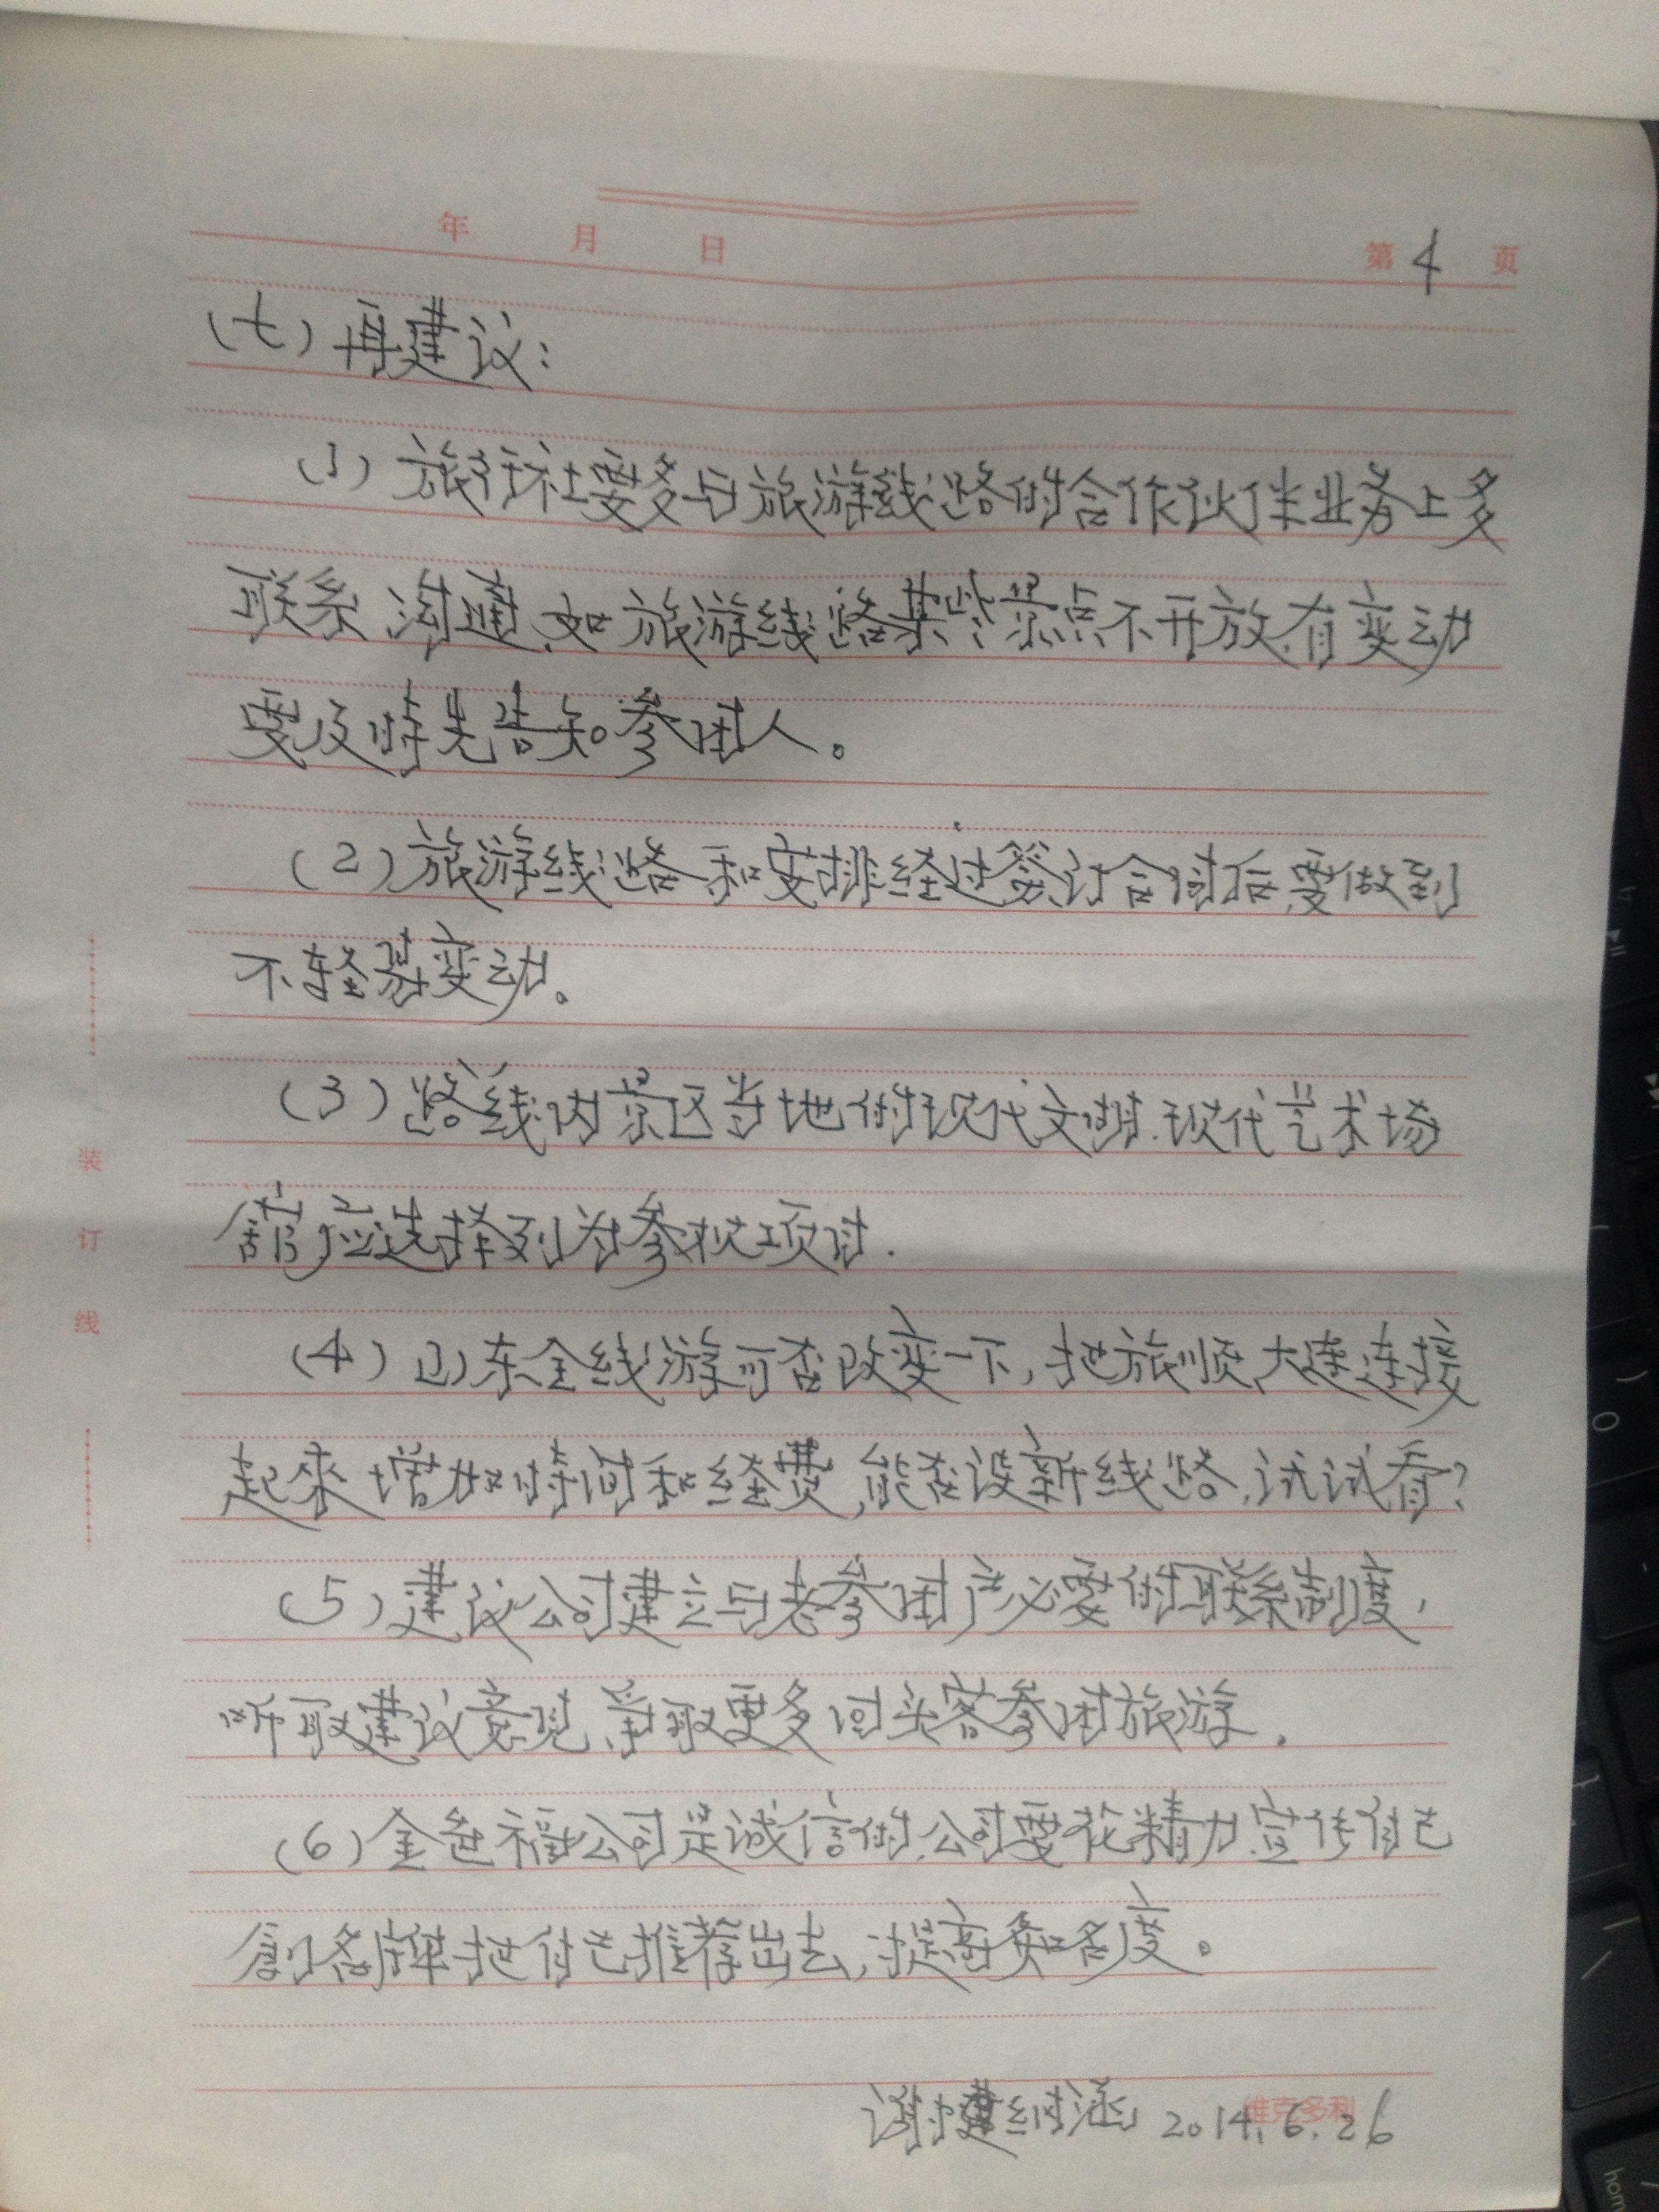 年 月 日
第 4 页
(七)再建议:
(1)旅行社要多与旅游线路的合作伙伴业务上多
联系 沟通、如旅游线路某些景点不开放、有变动
要及时先告知参团人。
(2)旅游线路和安排经过签订合同后,要做到
不轻易变动。
(3)路线内景区当地的现代文明.现代艺术场
馆应选择列为参观项目.
(4)山东全线游可否改变一下,把旅顺、大连连接
起来增加时间和经费,能否设新线路,试试看?
(5)建议公司建立与老参团户必要的联系制度,
听取建议意见、争取更多回头客参团旅游.
(6)金色福公司是诚信的.公司要花精力宣传自己
創名牌把自己推荐出去,提高知名度。
谢 2014.6.26
维克多利
装
订
线
home